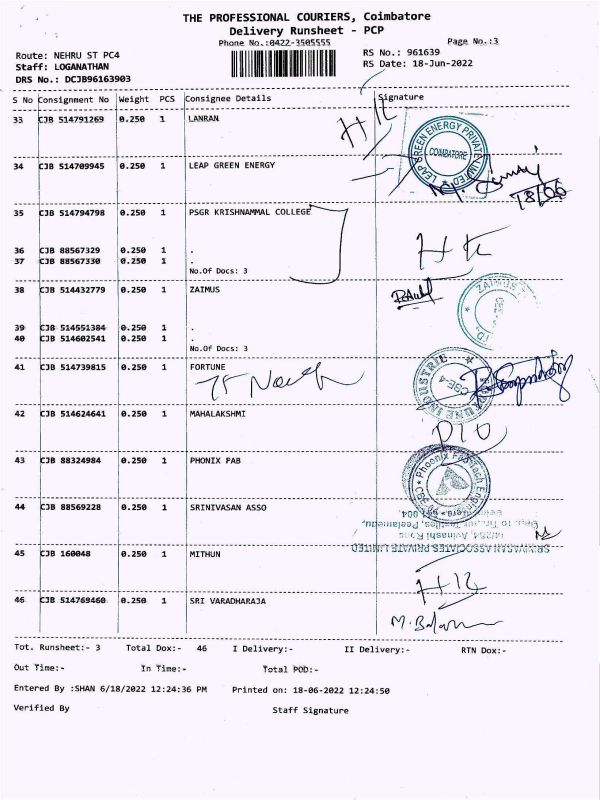 THE PROFESSIONAL COURIERS, Coimbatore
Delivery Runsheet - PCP
Phone No.:0422-3505555
Page No.:3
Route: NEHRU ST PC4
RS No.: 961639
Staff: LOGANATHAN
RS Date: 18-Jun-2022
DRS No.: DCJB96163903
S No Consignment No Weight PCS Consignee Details Signature
33 CJB 514791269 0.250 1 LANRAN
LEAP GREEN ENERGY PRIVATE LIMITED
COIMBATORE
34 CJB 514709945 0.250 1 LEAP GREEN ENERGY
18/06
35 CJB 514794798 0.250 1 PSGR KRISHNAMMAL COLLEGE
36 CJB 88567329 0.250 1 .
37 CJB 88567330 0.250 1 .
No.Of Docs: 3
38 CJB 514432779 0.250 1 ZAIMUS
ZAIMUS
39 CJB 514551384 0.250 1 .
40 CJB 514602541 0.250 1 .
No.Of Docs: 3
41 CJB 514739815 0.250 1 FORTUNE
CBE-4
42 CJB 514624641 0.250 1 MAHALAKSHMI
43 CJB 88324984 0.250 1 PHONIX FAB
44 CJB 88569228 0.250 1 SRINIVASAN ASSO
45 CJB 160048 0.250 1 MITHUN
46 CJB 514769460 0.250 1 SRI VARADHARAJA
Tot. Runsheet:- 3 Total Dox:- 46 I Delivery:- II Delivery:- RTN Dox:-
Out Time:- In Time:- Total POD:-
Entered By :SHAN 6/18/2022 12:24:36 PM Printed on: 18-06-2022 12:24:50
Verified By Staff Signature